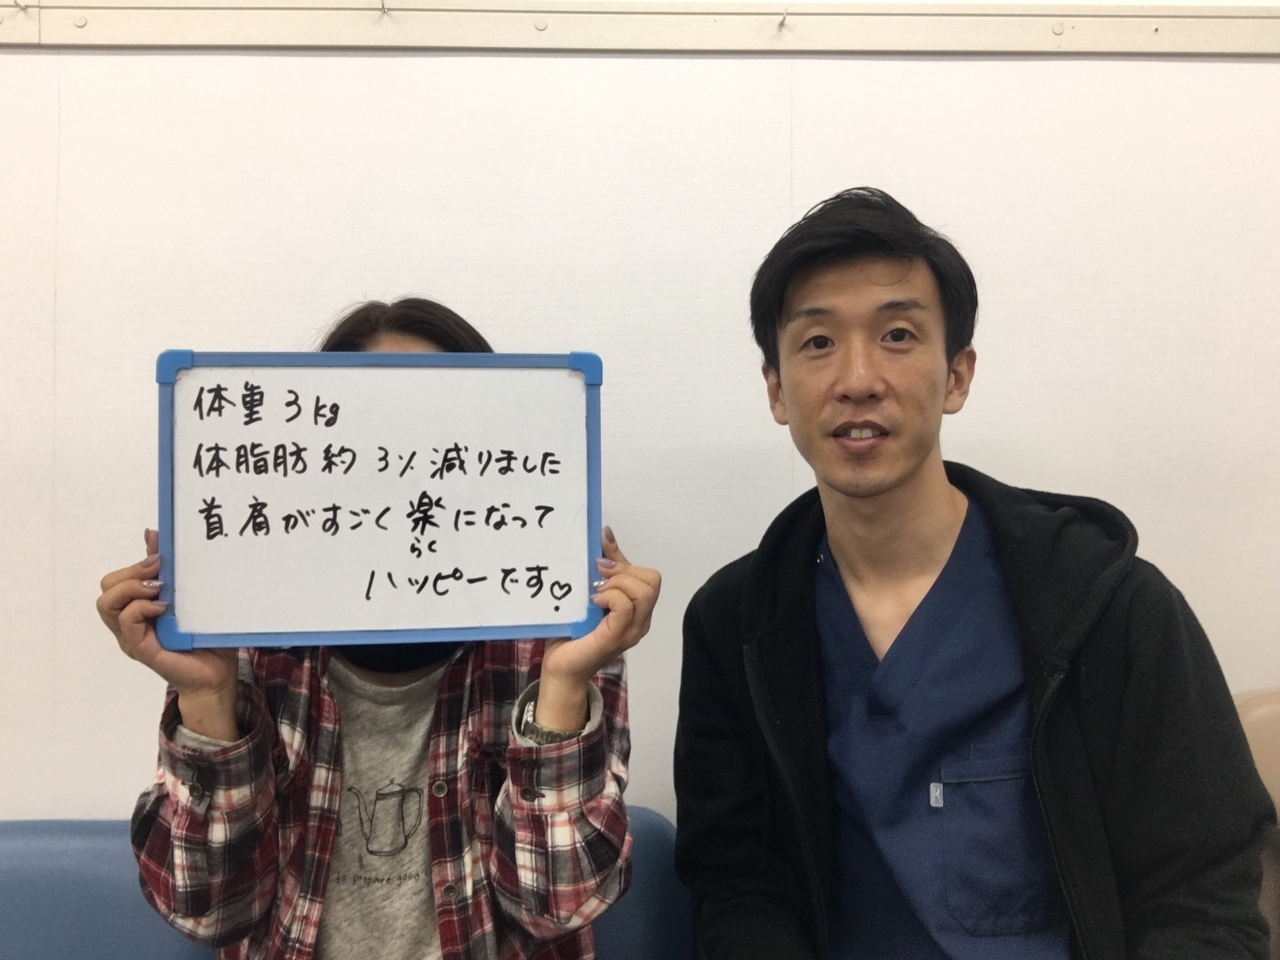 体重 3kg
体脂肪 約 3% 減りました
首肩がすごく楽になって
らく
ハッピーです♡
to prepare good